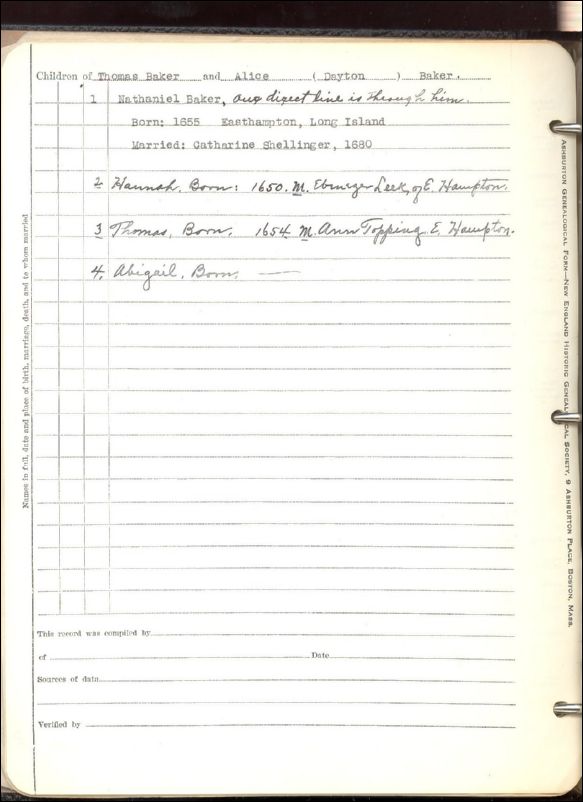 Children of Thomas Baker and Alice ( Dayton ) Baker.
1 Nathaniel Baker, our direct line is through him.
Born: 1655 Easthampton, Long Island
Married: Catharine Shellinger, 1680
2 Hannah, Born: 1650. M. Ebenezer Leek, of E. Hampton.
3 Thomas, Born. 1654 M. Ann Topping E. Hampton.
4. Abigail, Born. —
Names in full, date and place of birth, marriage, death, and to whom married
This record was compiled by
of Date
Sources of data
Verified by
Ashburton Genealogical Form—New England Historic Genealogical Society, 9 Ashburton Place, Boston, Mass.